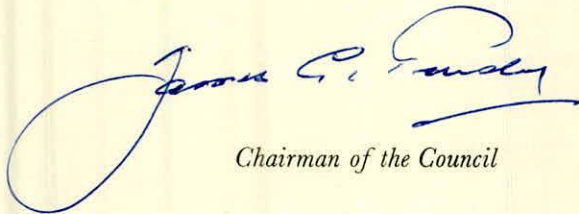 James
Chairman of the Council